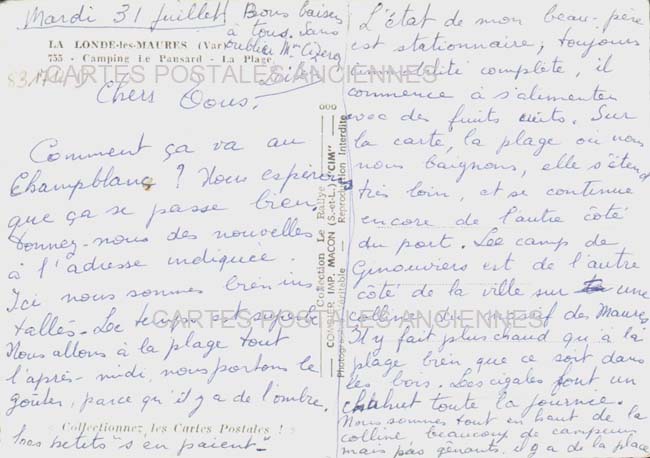 Mardi 31 juillet
Bons baisers
à tous. Sans
oublier Mme
LA LONDE-les-MAURES (Var)
755 - Camping Le Pansard - La Plage
CARTES POSTALES ANCIENNES
Chers Tous.
Comment ça va au
Champblanc ? Nous espérons
que ça se passe bien.
Donnez-nous des nouvelles
à l'adresse indiquée.
Ici nous sommes bien ins
tallés. Le temps est superbe
Nous allons à la plage tout
l'après-midi, nous portons le
goûter, parce qu'il y a de l'ombre.
Collectionnez les Cartes Postales !
Les petits "s'en paient"
Collection Le Rallye
COMBIER IMP. MACON (S.-et-L.) "CIM"
Photographie Véritable — Reproduction Interdite
L'état de mon beau-père
est stationnaire; toujours
immobilité complète, il
commence à s'alimenter
avec des fruits cuits. Sur
la carte, la plage où nous
nous baignons, elle s'étend
très loin, et se continue
encore de l'autre côté
du port. Le camp de
est de l'autre
côté de la ville sur une
colline du massif des Maures
Il y fait plus chaud qu'à la
plage bien que ce soit dans
les bois. Les cigales font un
chahut toute la journée.
Nous sommes tout en haut de la
colline, beaucoup de campeurs
mais pas gênants, il y a de la place
CARTES POSTALES ANCIENNES